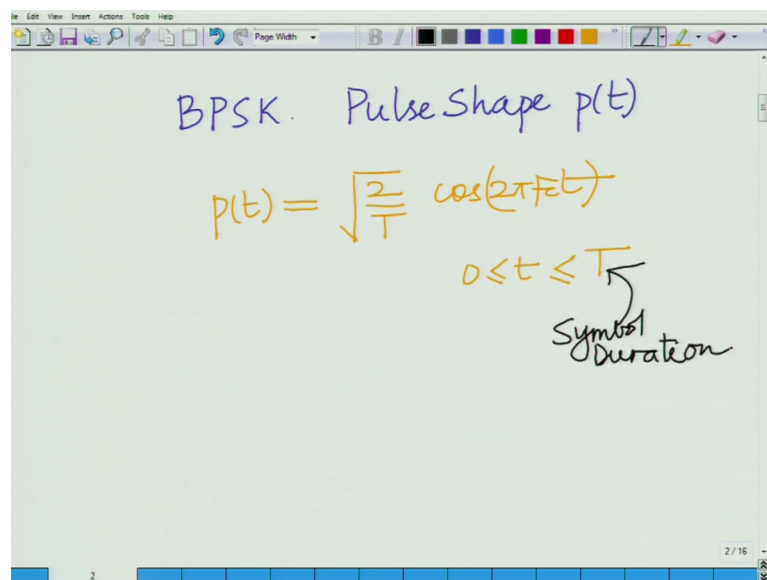 le Edit View Insert Actions Tools Help
Page Width
BPSK. Pulse Shape p(t)
p(t) = √(2/T) cos(2πFct)
0 ≤ t ≤ T
Symbol
Duration
2 / 16
2